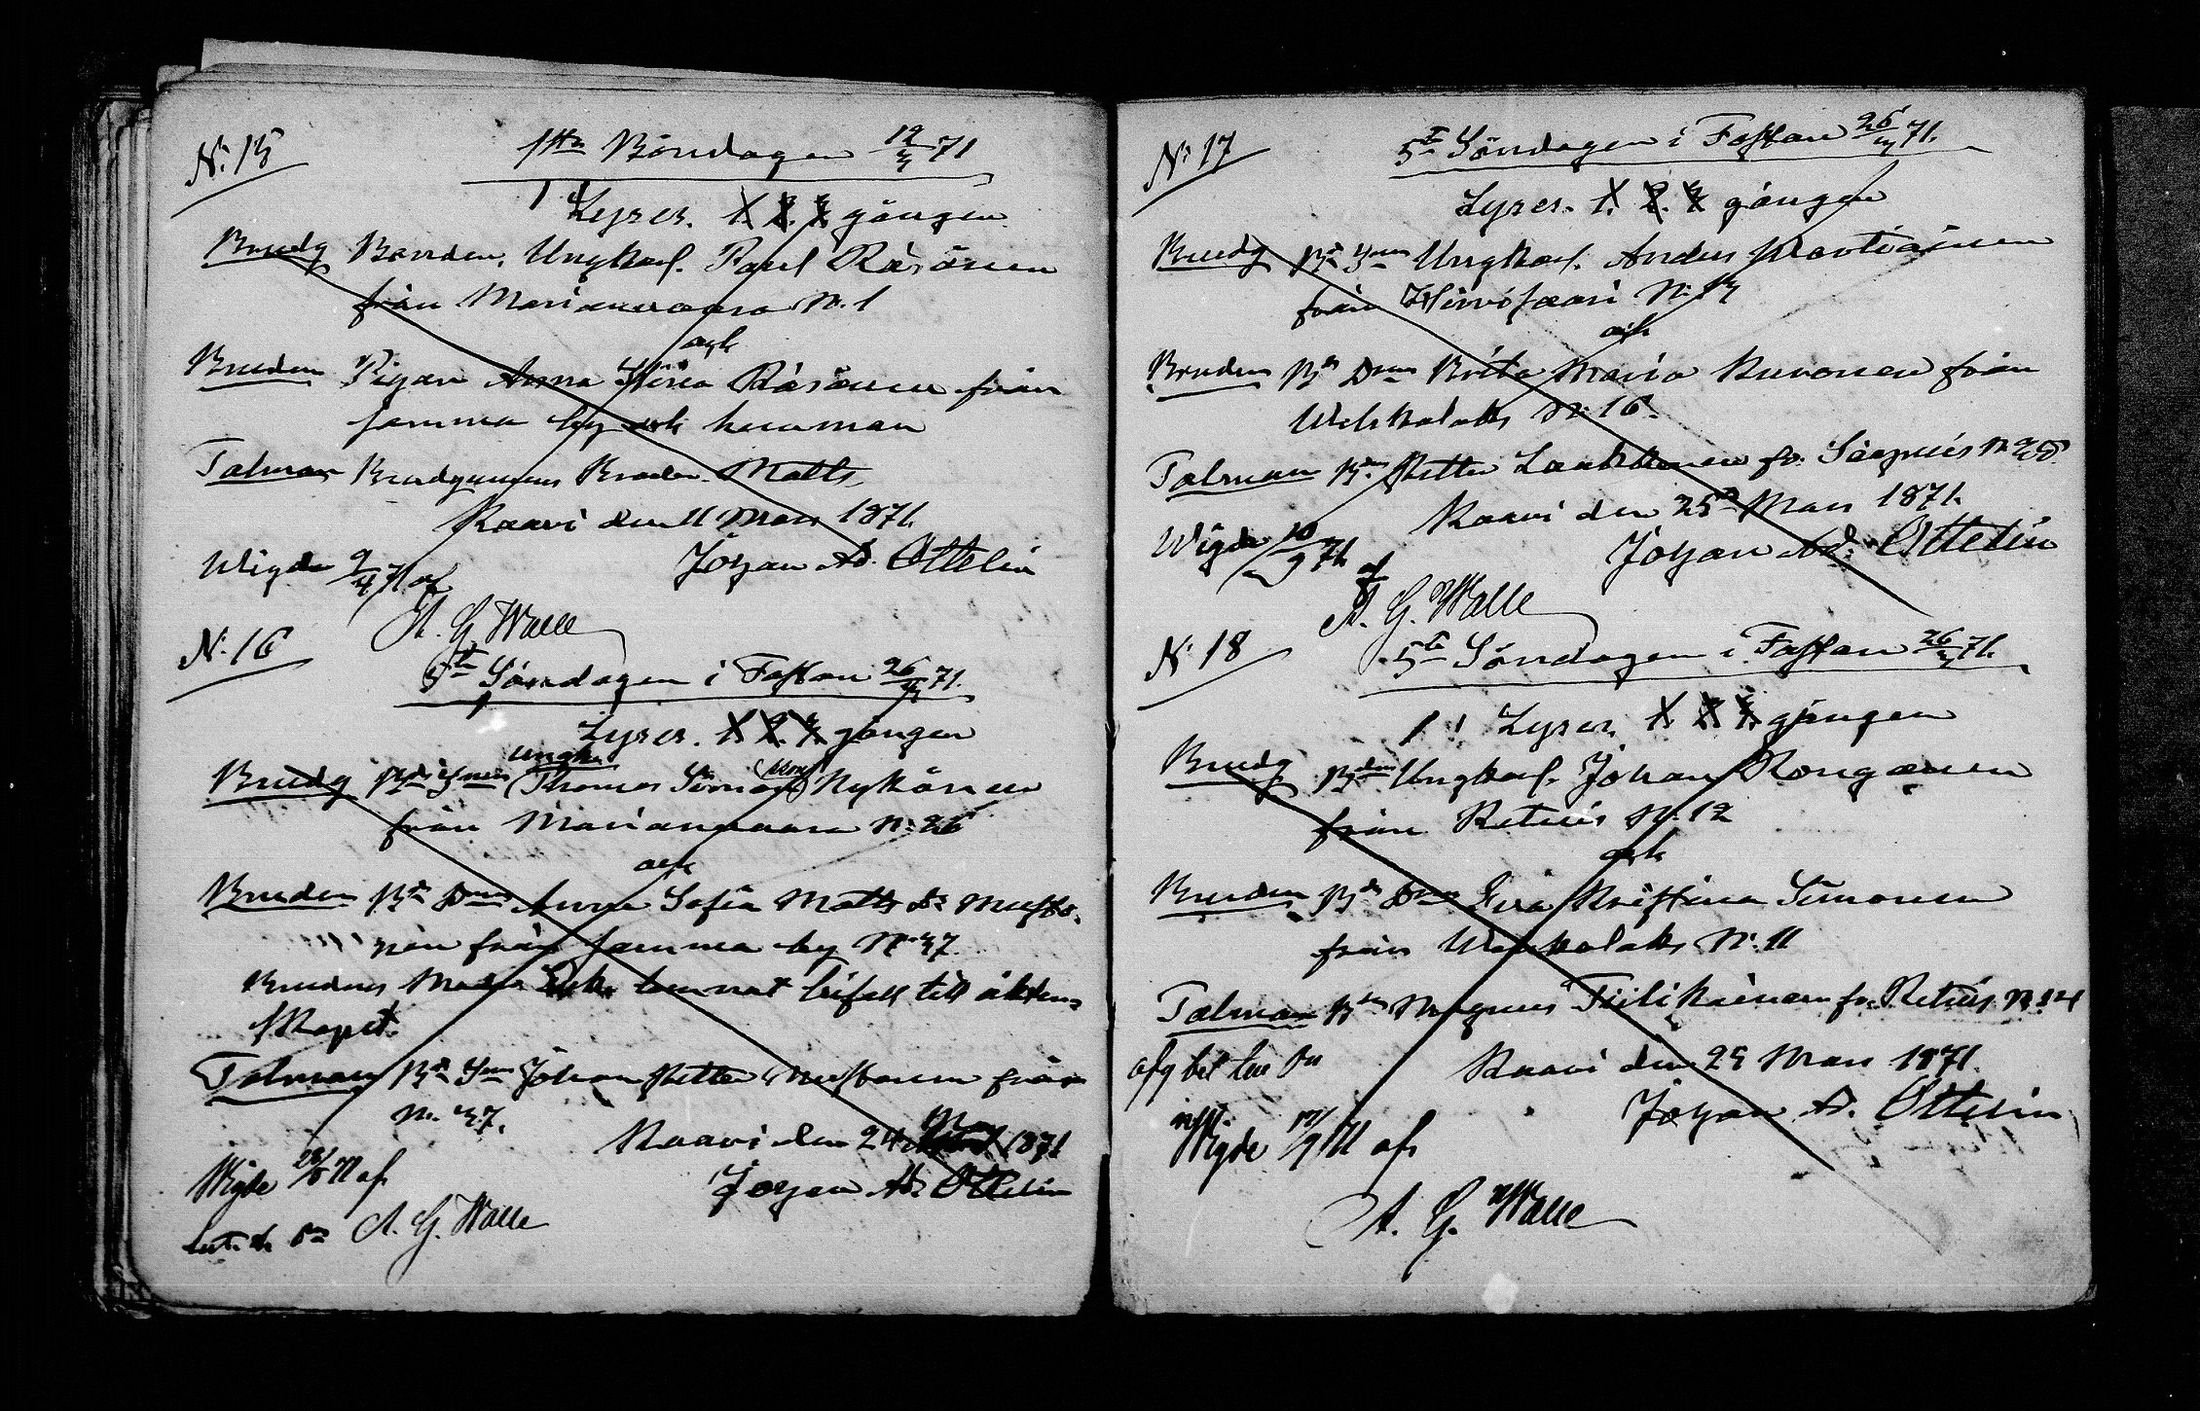 N:15
1sta Böndagen 12/3 71
Lyses. 1. 2. 3. gången
Brudg Bonden, Ungkarl. Paul Räsönen
från Marianvaara N. 1
och
Bruden Pigan Anna Stina Räsönen från
samma by och hemman
Talman Brudgummens Broder Matts
Kaavi den 11 Mars 1871.
Johan Ad. Ottelin
Wigde 9/4 71 af
A. G. Walle
N:16
5te Söndagen i Fastan 26/3 71.
Lyses. 1. 2. 3. gången
Ungk.
Brudg Bds Snen Thomas Simon Nykänen
från Marianvaara N: 26
och
Bruden Bds Dnen Anna Sofia Matts Dr Musto-
nen från samma by N: 37
Brudens Moder lemnat bifall till äkten-
skapet.
Talman Bds Snen Johan Petter Mustonen från
N. 37.
Kaavi den 24 Mars 1871
Johan Ad. Ottelin
Wigde af
A. G. Walle
N: 17
5te Söndagen i Fastan 26/3 71.
Lyses. 1. 2. 3. gången
Brudg Bds Snen Ungkarl. Anders Martiainen
från Hirvisaari N: 13
och
Bruden Bds Dnen Brita Maria Ruuonen från
Wehkalaks N: 16.
Talman Bdn Petter Laukkanen fr. Siepuris N 25.
Kaavi den 25 Mars 1871.
Johan Ad. Ottelin
Wigde 10/9 71 af
A. G. Walle
N: 18
5te Söndagen i Fastan 26/3 71.
Lyses 1. 2. 3. gången
Brudg Bdn Ungkarl. Johan Kongainen
från Retuis N. 12
och
Bruden Bds Dnen Eva Kristina Simonen
från Wehkalaks N: 11
Talman Bdn Magnus Tiilikainen fr. Retuis N: 24
Kaavi den 25 Mars 1871.
Johan Ad. Ottelin
Wigde af
A. G. Walle